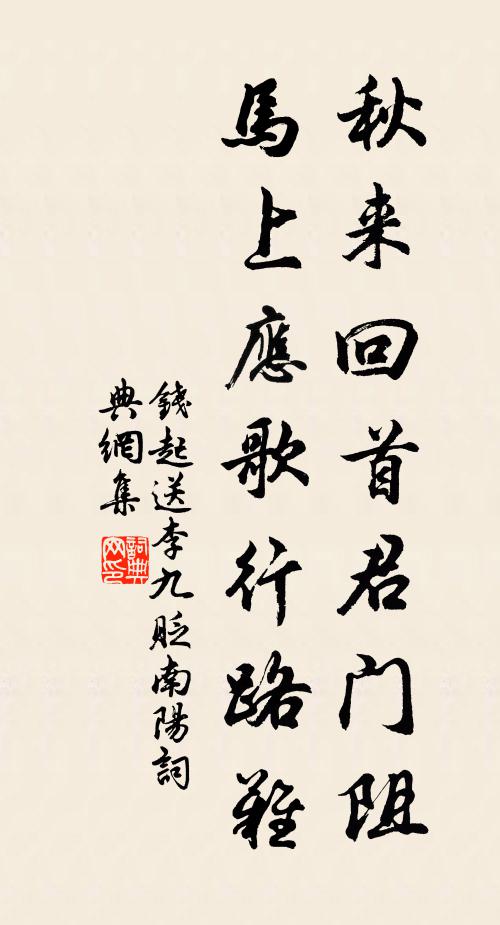 秋来回首君门阻
馬上應歌行路難
錢起送李九貶南陽詞
典網集
詞典
网印